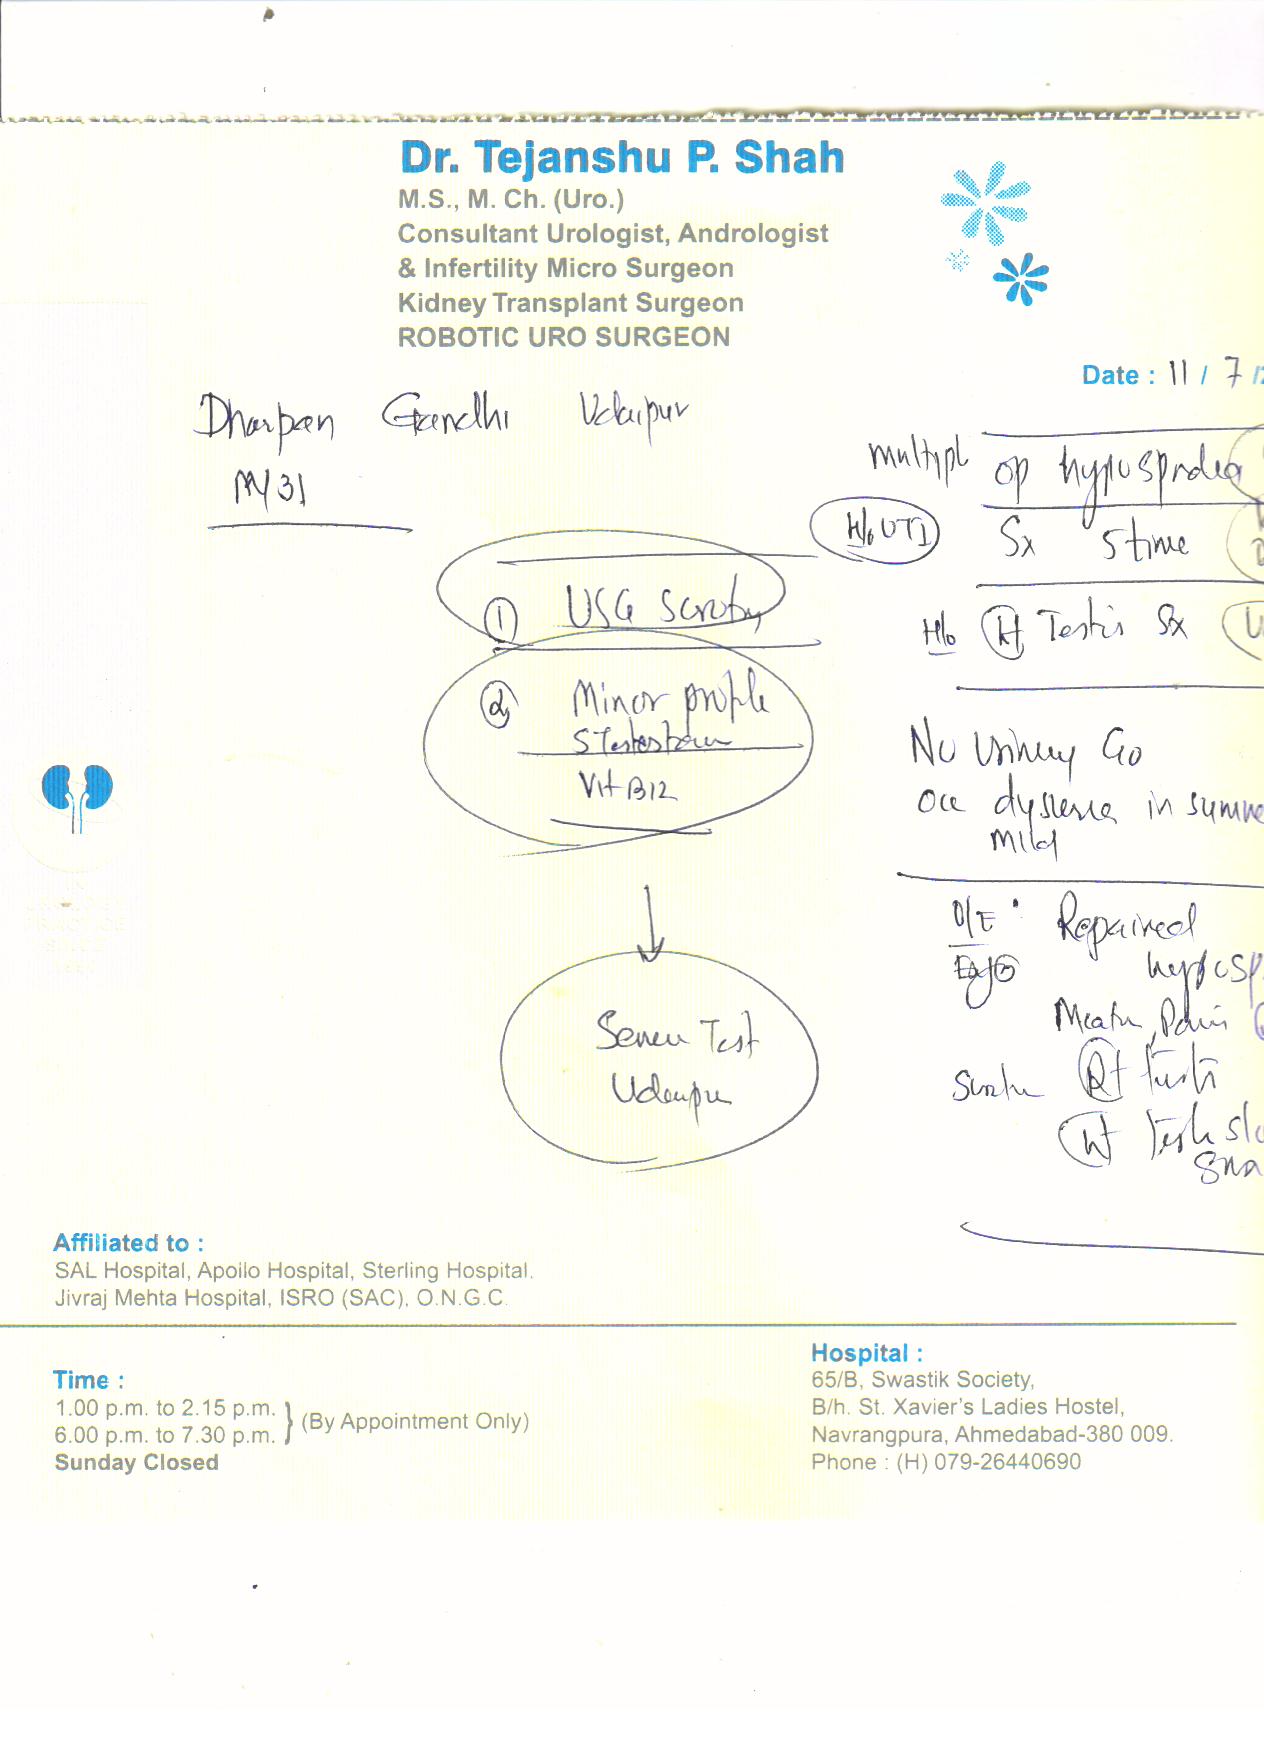 Dr. Tejanshu P. Shah
M.S., M. Ch. (Uro.)
Consultant Urologist, Andrologist
& Infertility Micro Surgeon
Kidney Transplant Surgeon
ROBOTIC URO SURGEON
Date : 11 / 7 /
Dharpan Gandhi Udaipur
M/31
multipl op hypospradea
H/o UTI Sx 5 time
H/o Testis Sx
① USG Scrotm
② Minor profile
S Testesteron
Vit B12
No Urinary Co
Occ dysuria in summe
Mild
O/E Repaired
hyposp
Meatu, Penis
Rt testi
Semen Test
Udaipur
Affiliated to :
SAL Hospital, Apollo Hospital, Sterling Hospital,
Jivraj Mehta Hospital, ISRO (SAC), O.N.G.C.
Time :
1.00 p.m. to 2.15 p.m.
6.00 p.m. to 7.30 p.m. } (By Appointment Only)
Sunday Closed
Hospital :
65/B, Swastik Society,
B/h. St. Xavier's Ladies Hostel,
Navrangpura, Ahmedabad-380 009.
Phone : (H) 079-26440690